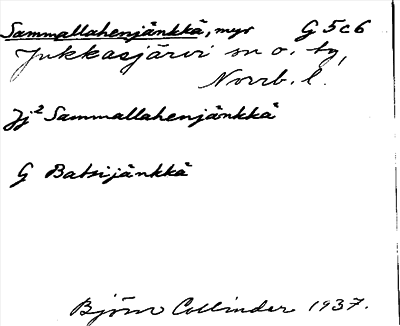 Sammallahenjänkkä, myr G5c6
Jukkasjärvi sn o. tg,
Norrb. l.
Jj² Sammallahenjänkkä
G Batsijänkkä
Björn Collinder 1937.